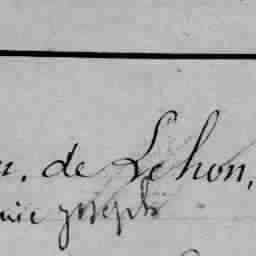 de Lehon,
nie joseph